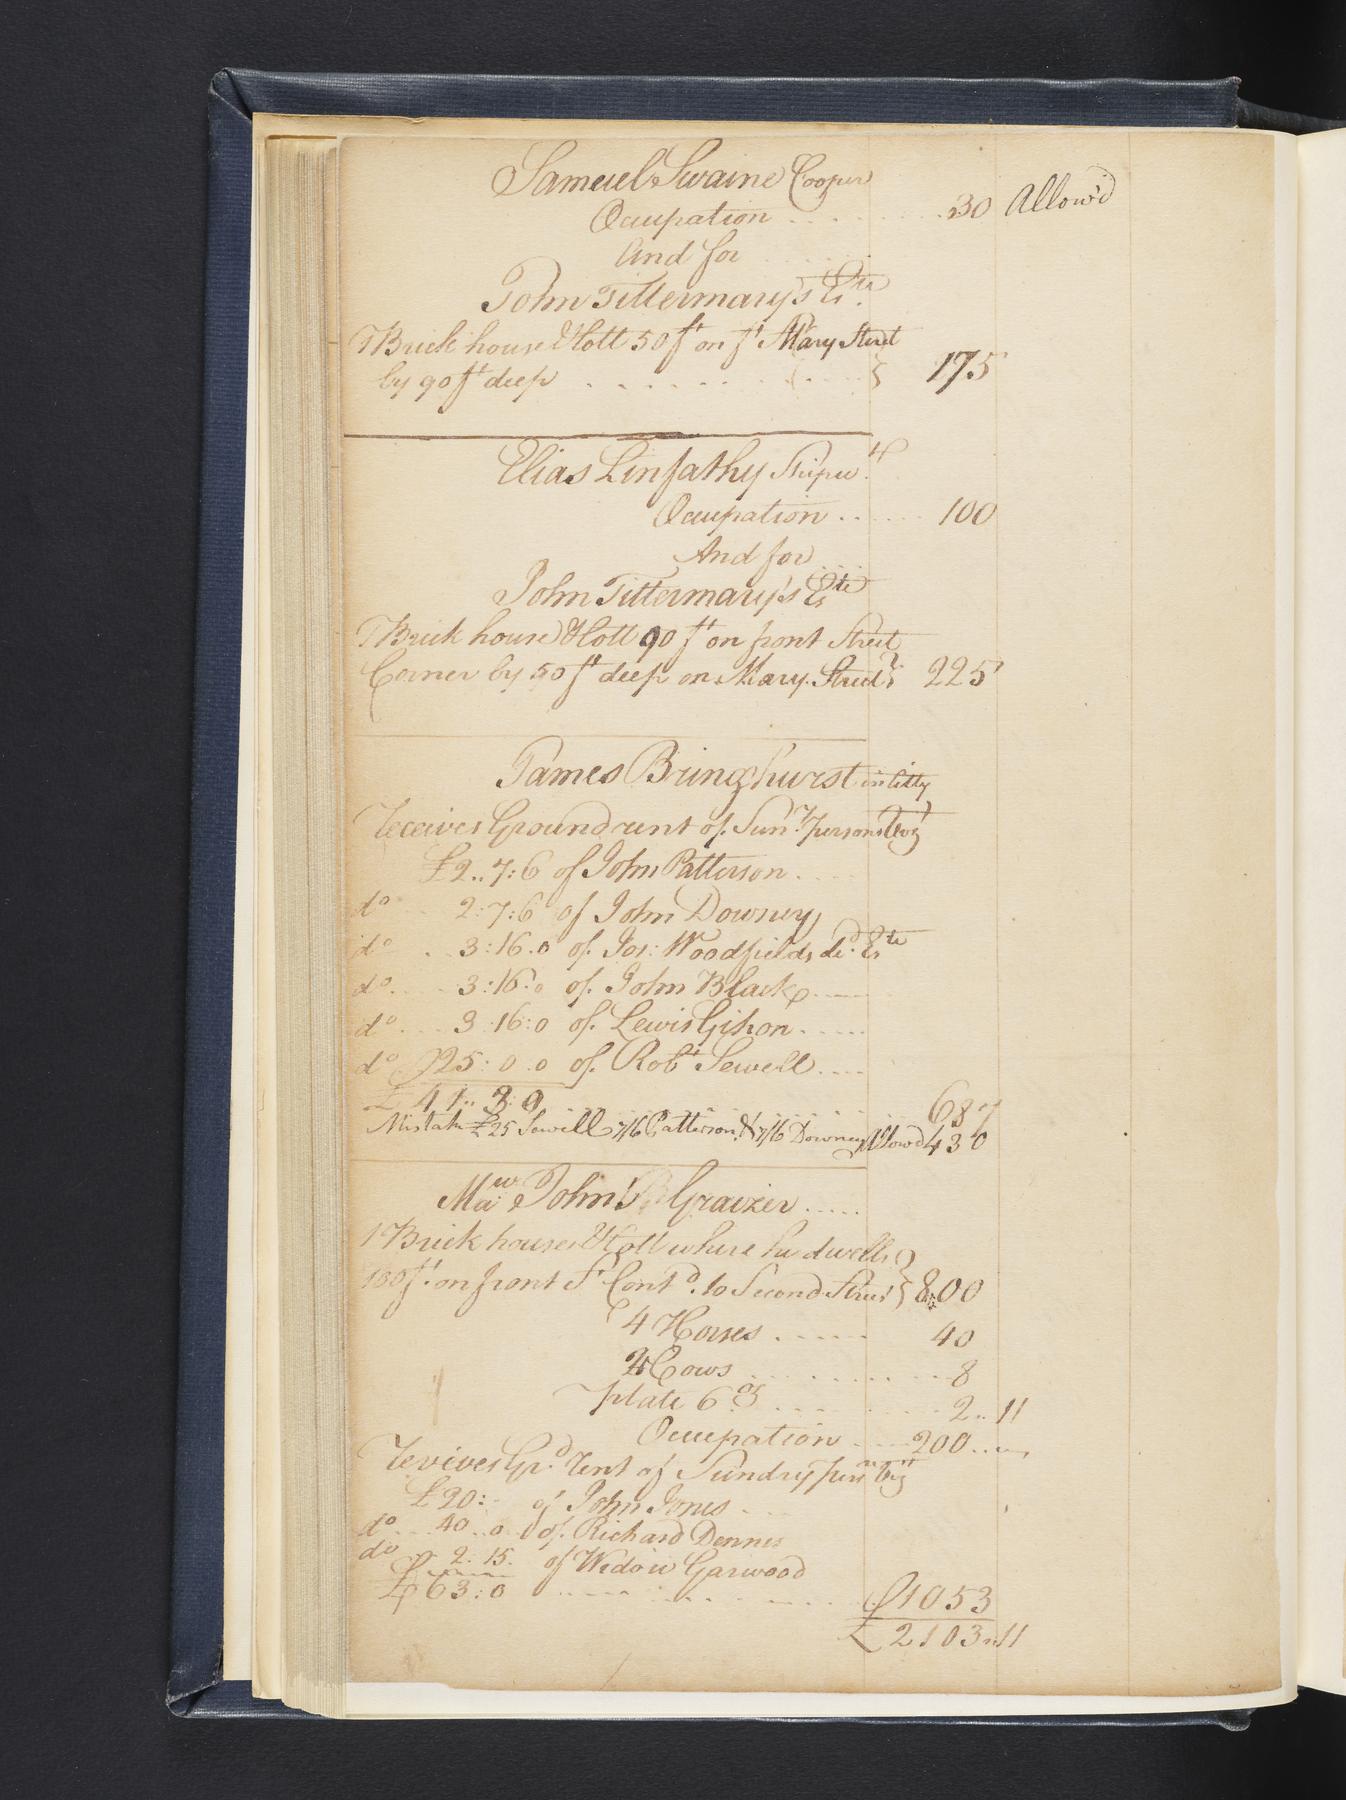 Samuel Swaine Cooper
Occupation . . . . . . . 30 Allow'd
And for
John Tittermary's Es.te
1 Brick house & Lott 50 f.t on s.d Mary Street
by 90 f.t deep . . . . . . . 175
Elias Linfathy
Occupation . . . . . 100
And for
John Tittermary's Es.te
1 Brick house & Lott 90 f.t on front Street
Corner by 50 f.t deep on Mary Street 225
James Bringhurst in Citty
Receives Ground rent of Sun.y persons
£2..7:6 of John Patterson . . . .
d.o . . . 2:7:6 of John Downey
d.o . . 3:16.0 of Jos: Woodfields de.d Es.te
d.o . . . 3:16:0 of John Black . . .
d.o . . . 3:16:0 of Lewis Gihon . . . . .
d.o 25:0.0 of Rob.t Sewell . . . .
£ 41..3:0 . . . . . . . 687
Mistake £25 Sewell 7/6 Patterson & 7/6 Downey Allow'd 430
John Graizer . . . . .
1 Brick house & Lott where he dwells
100 f.t on front S.t Cont.d to Second Street 800
4 Horses . . . . . 40
Cows . . . . . . 8
plate 6 oz . . . . . . 2..11
Occupation . . . 200..
Receives Gr.d Rent of Sundry
£20:- of John Jones . . .
d.o . . 40..0.. of Richard Dennes
d.o 2.15. of Widow Garwood
£63:0 . . . . . . £1053
£2103..11